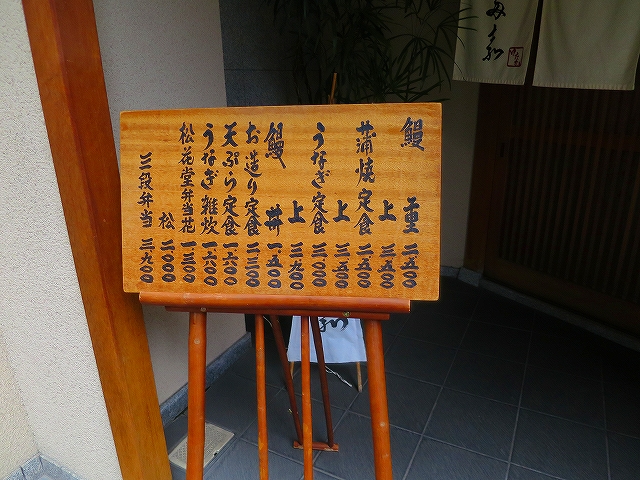 鰻重 二.五〇〇
上 三.五〇〇
蒲焼定食 二.五〇〇
上 三.五〇〇
うなぎ定食 三.〇〇〇
上 三.九〇〇
鰻丼 一.五〇〇
お造り定食 二.三〇〇
天ぷら定食 一.六〇〇
うなぎ雑炊 一.六〇〇
松花堂弁当花 一.三〇〇
松 二.〇〇〇
三段弁当 三.九〇〇